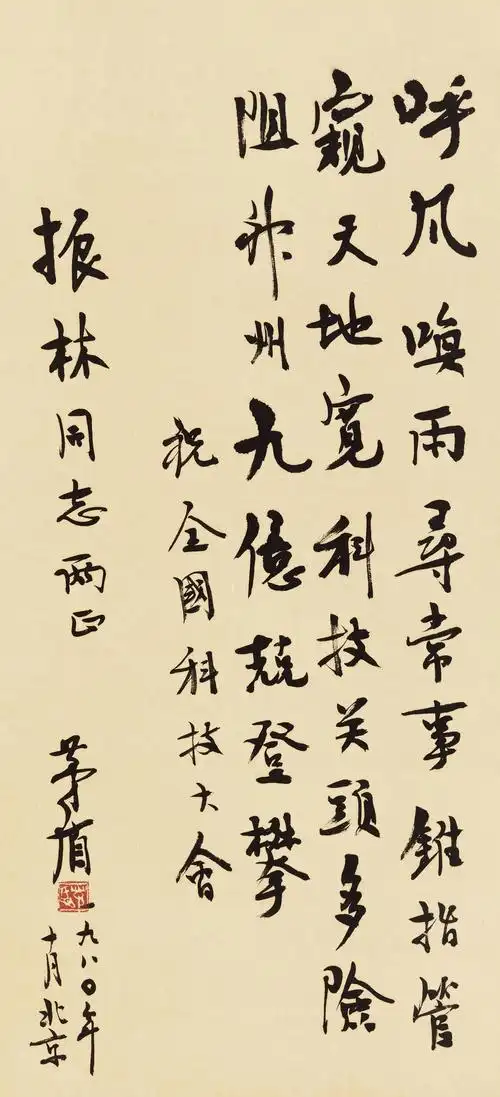 呼风唤雨寻常事锥指管
窥天地宽科技关头多險
阻神州九億競登攀
祝全國科技大會
振林同志两正
茅盾
一九八〇年
十月北京